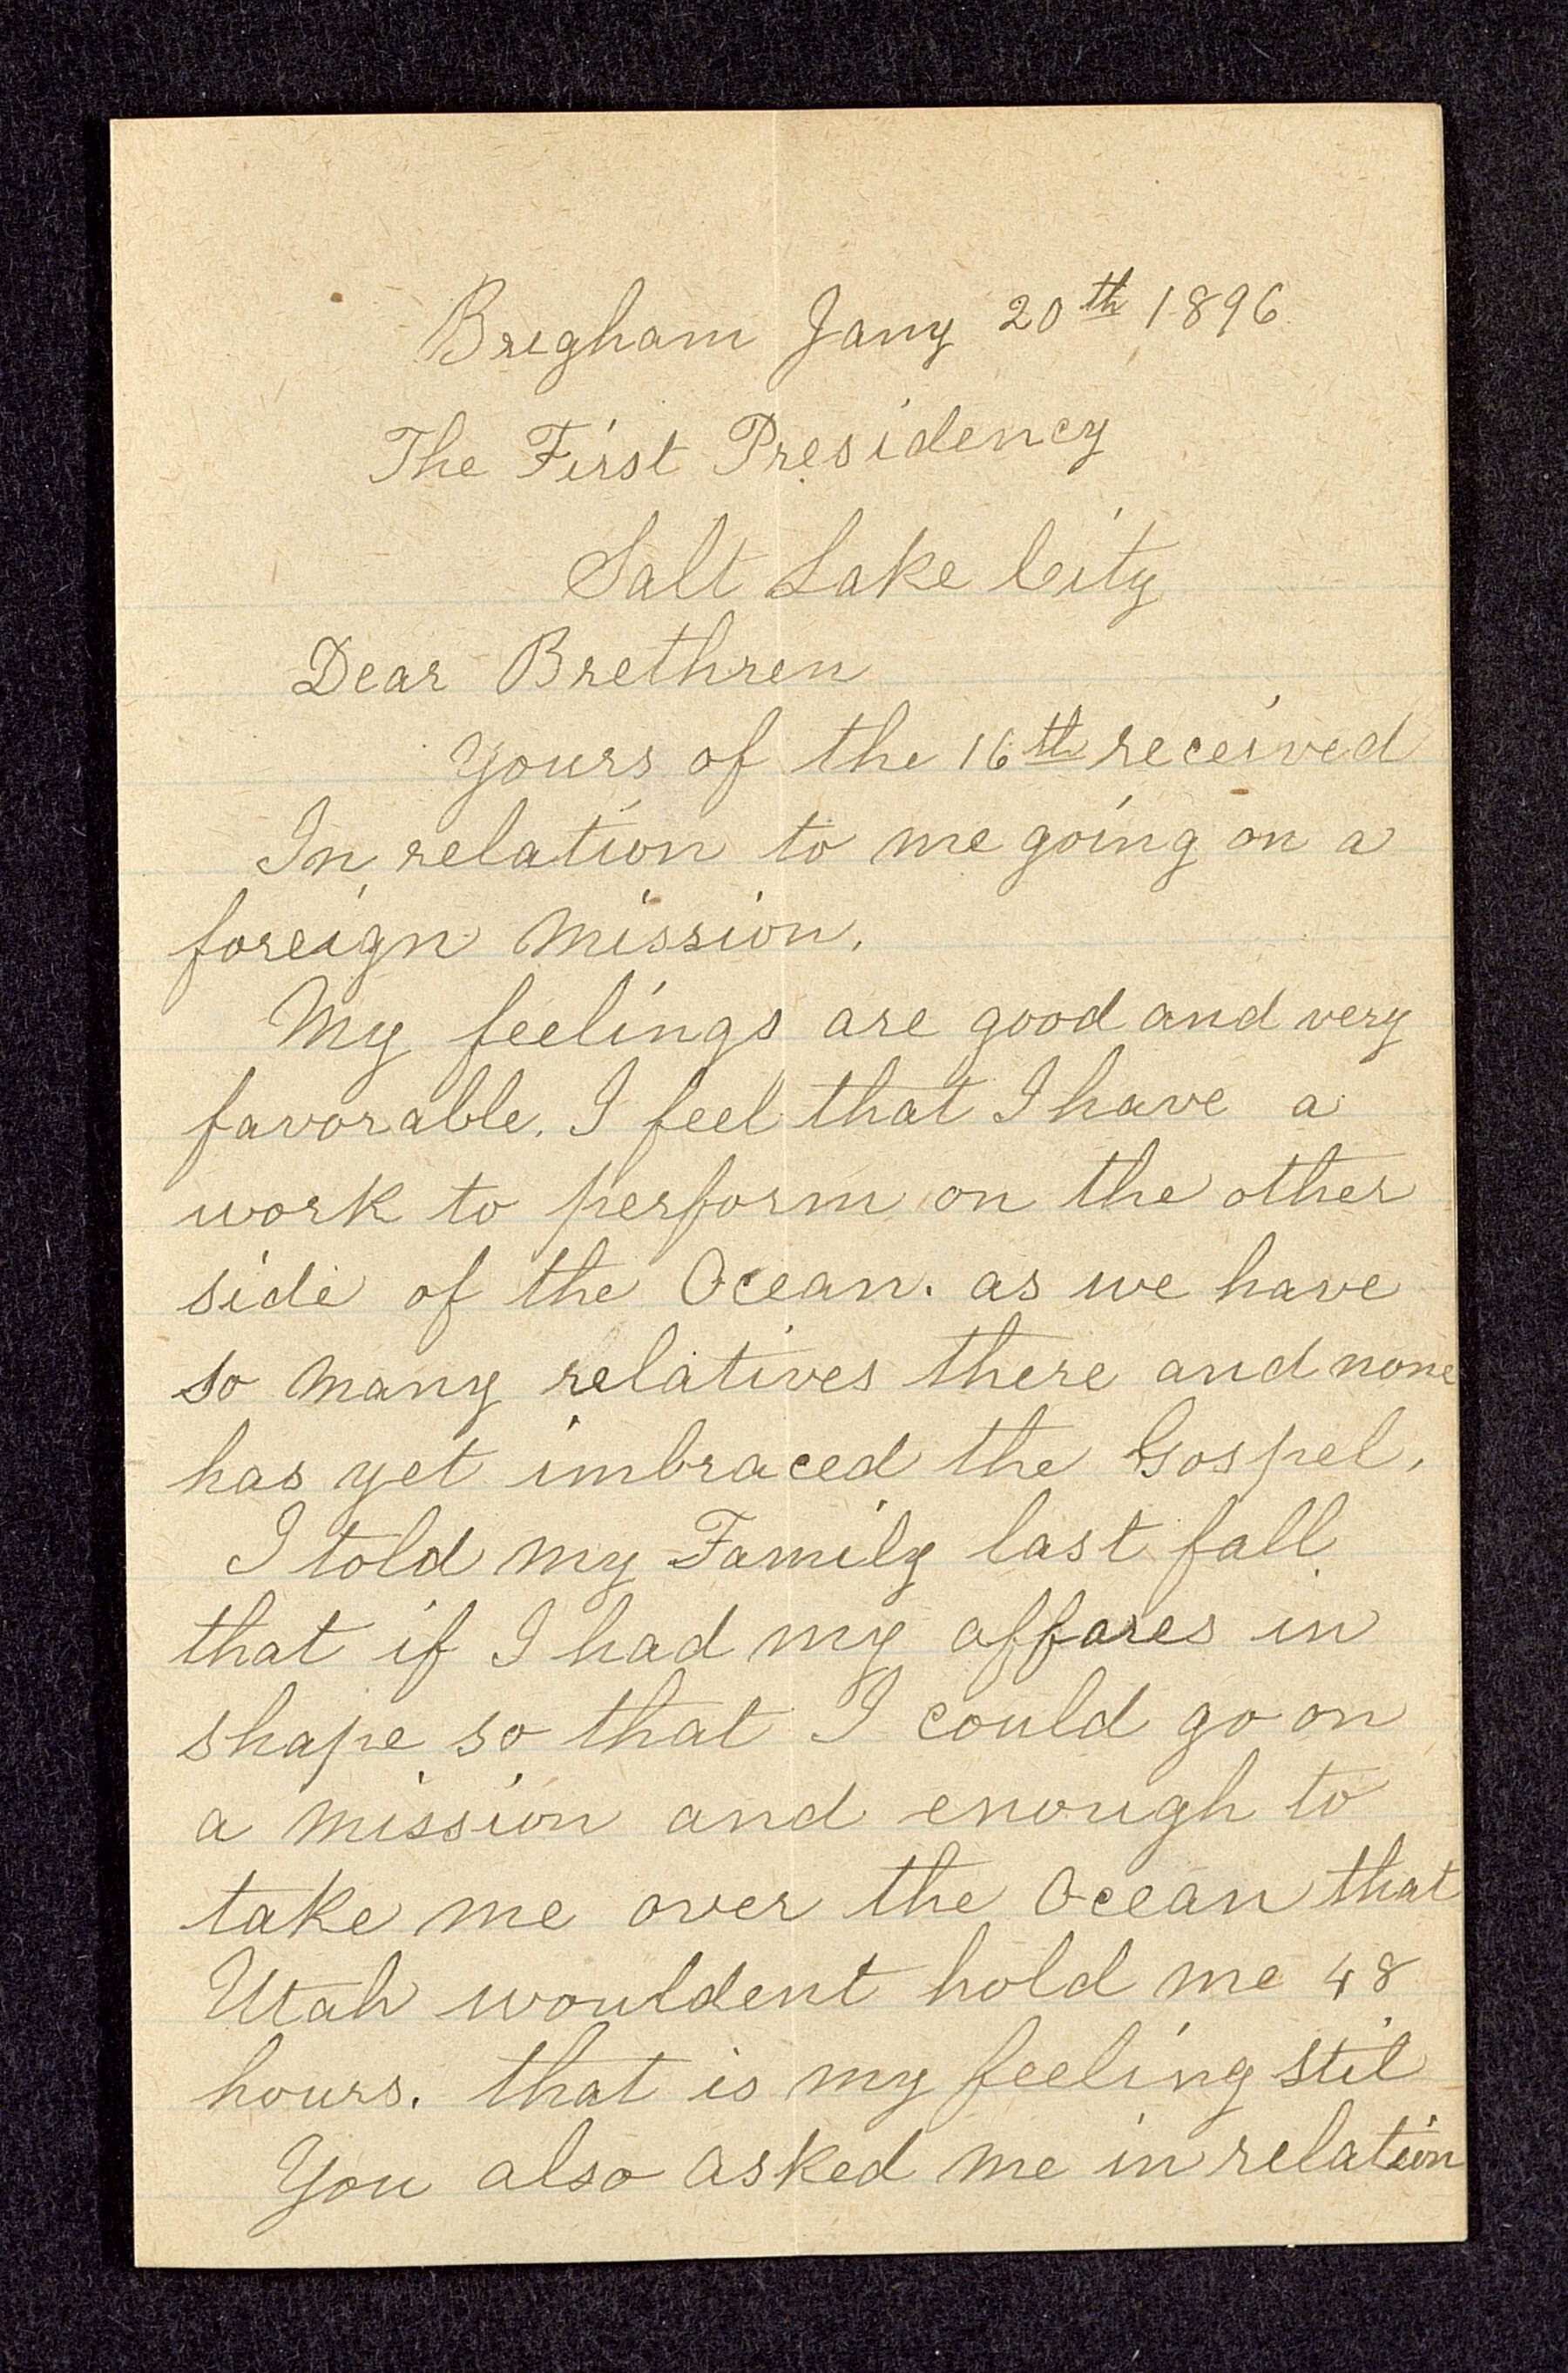 Brigham Jany 20th 1896
The First Presidency
Salt Lake City
Dear Brethren
Yours of the 16th received
In relation to me going on a
foreign mission.
My feelings are good and very
favorable. I feel that I have a
work to perform on the other
side of the Ocean. as we have
so many relatives there and none
has yet imbraced the Gospel.
I told my Family last fall
that if I had my affares in
shape so that I could go on
a mission and enough to
take me over the Ocean that
Utah wouldent hold me 48
hours. that is my feeling stil
You also asked me in relation